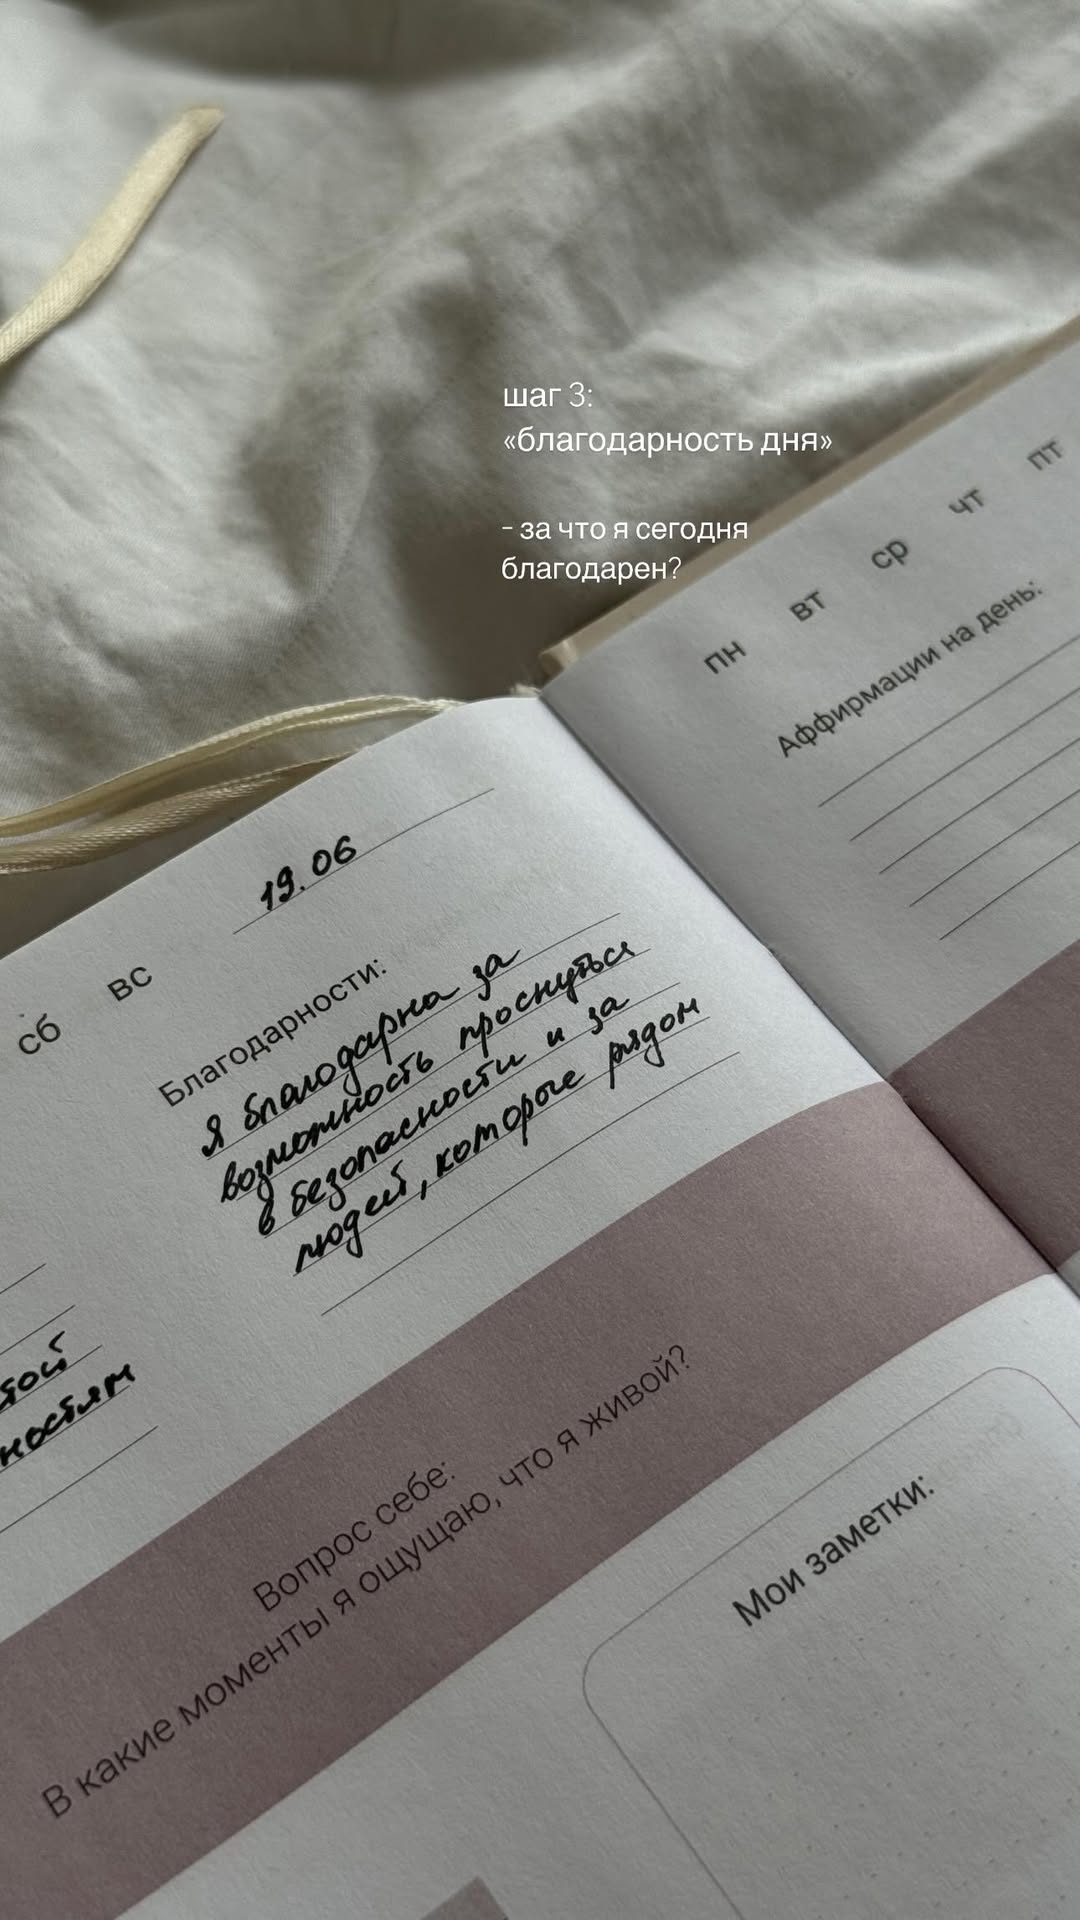 шаг 3:
«благодарность дня»
- за что я сегодня
благодарен?
пн вт ср чт пт
Аффирмации на день:
сб вс
19.06
Благодарности:
Я благодарна за
возможность проснуться
в безопасности и за
людей, которые рядом
Вопрос себе:
В какие моменты я ощущаю, что я живой?
Мои заметки: